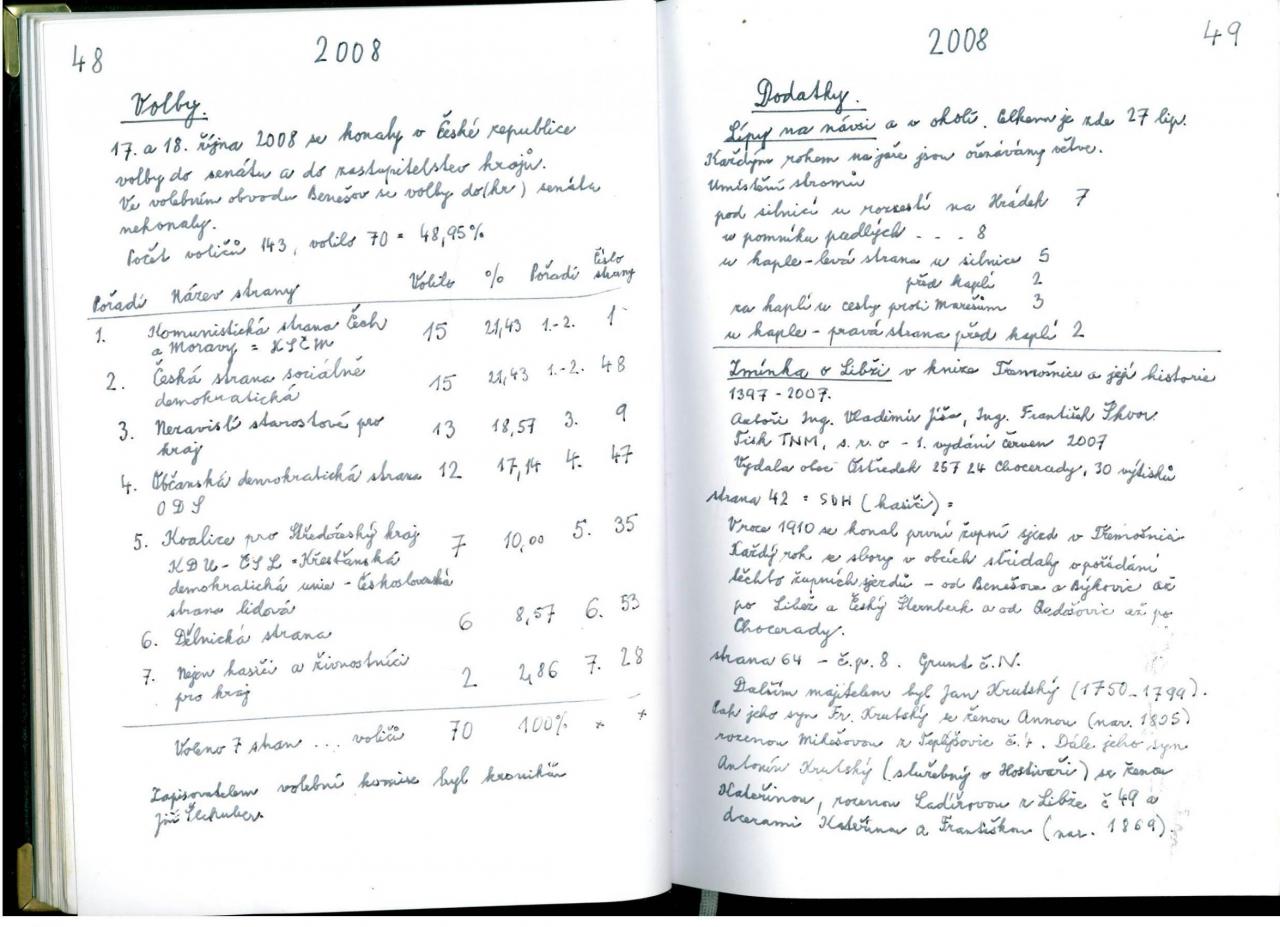 48
2008
Volby.
17. a 18. října 2008 se konaly v České republice
volby do senátu a do zastupitelstev krajů.
Ve volebním obvodu Benešov se volby do (kr) senátu
nekonaly.
Počet voličů 143, volilo 70 = 48,95%
Pořadí Název strany Volilo % Pořadí Číslo strany
1. Komunistická strana Čech 15 21,43 1.-2. 1
a Moravy = KSČM
2. Česká strana sociálně 15 21,43 1.-2. 48
demokratická
3. Nezávislí starostové pro 13 18,57 3. 9
kraj
4. Občanská demokratická strana 12 17,14 4. 47
ODS
5. Koalice pro Středočeský kraj 7 10,00 5. 35
KDU-ČSL = Křesťanská
demokratická unie - Československá
strana lidová
6. Dělnická strana 6 8,57 6. 53
7. Nejen hasiči a živnostníci 2 2,86 7. 28
pro kraj
Voleno 7 stran ... voličů 70 100% × ×
Zapisovatelem volební komise byl kronikář
Jiří
49
2008
Dodatky.
Lípy na návsi a v okolí. Celkem je zde 27 lip.
Každým rokem na jaře jsou ořezávány větve.
Umístění stromů
pod silnicí u rozcestí na Hrádek 7
u pomníku padlých . . . . 8
u kaple - levá strana u silnice 5
před kaplí 2
za kaplí u cesty proti Marešům 3
u kaple - pravá strana před kaplí 2
Zmínka o Libži v knize Třemošnice a její historie
1397 - 2007.
Autoři Ing. Vladimír Jíša, Ing. František Škvor
Tisk TNM, s. r. o - 1. vydání červen 2007
Vydala obec Ostředek 257 24 Chocerady, 30 výtisků
strana 42 = SDH (hasiči) =
V roce 1910 se konal první župní sjezd v Třemošnici
Každý rok se sbory v obcích střídaly v pořádání
těchto župních sjezdů - od Benešova a Býkovic až
po Libež a Český Šternberk a od Radošovic až po
Chocerady.
strana 64 - č.p. 8. Grunt č. IV.
Dalším majitelem byl Jan Krutský (1750-1799).
Pak jeho syn Fr. Krutský se ženou Annou (nar. 1805)
rozenou Mikešovou z Teplýšovic č. 7. Dále jeho syn
Antonín Krutský (služebný v Hostivaři) se ženou
Kateřinou, rozenou Ladířovou z Libže č 49 a
dcerami Kateřinou a Františkou (nar. 1869).